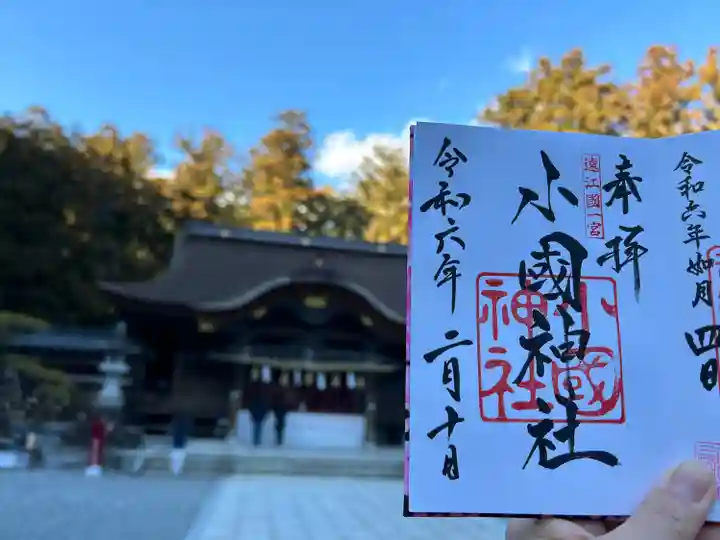 令和六年如月四日
奉拝
遠江國一宮
小國神社
小國神社
令和六年二月十日